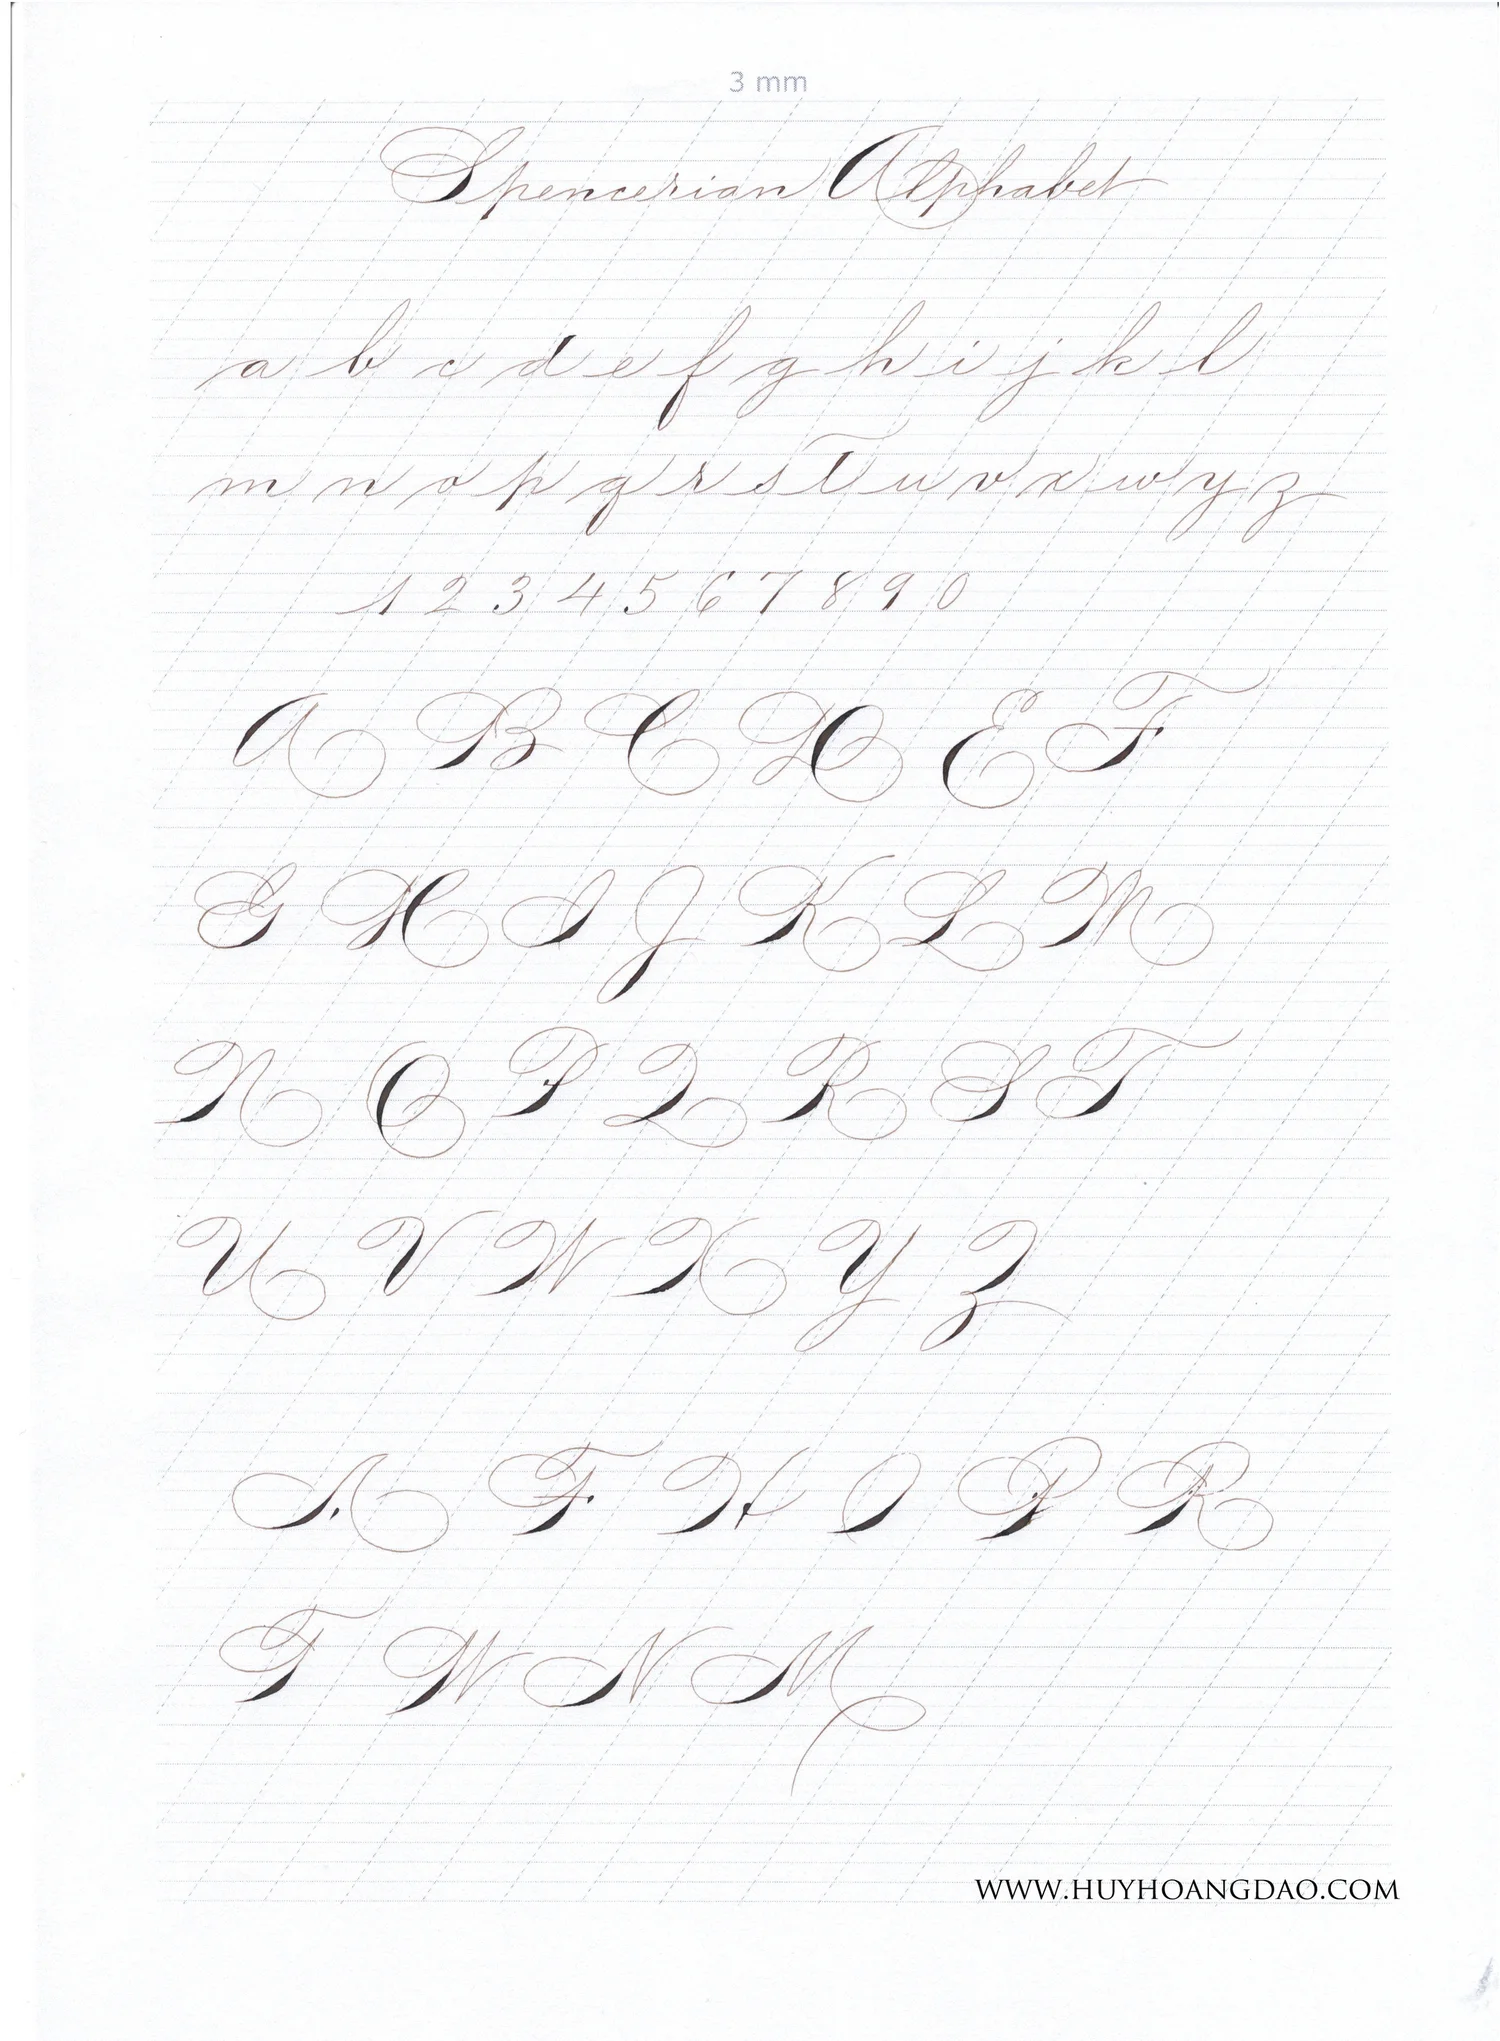 3 mm
Spencerian Alphabet
a b c d e f g h i j k l
m n o p q r s t u v x w y z
1 2 3 4 5 6 7 8 9 0
A B C D E F
G H I J K L M
N O P Q R S T
U V W X Y Z
A F H O P R
T W N M
WWW.HUYHOANGDAO.COM